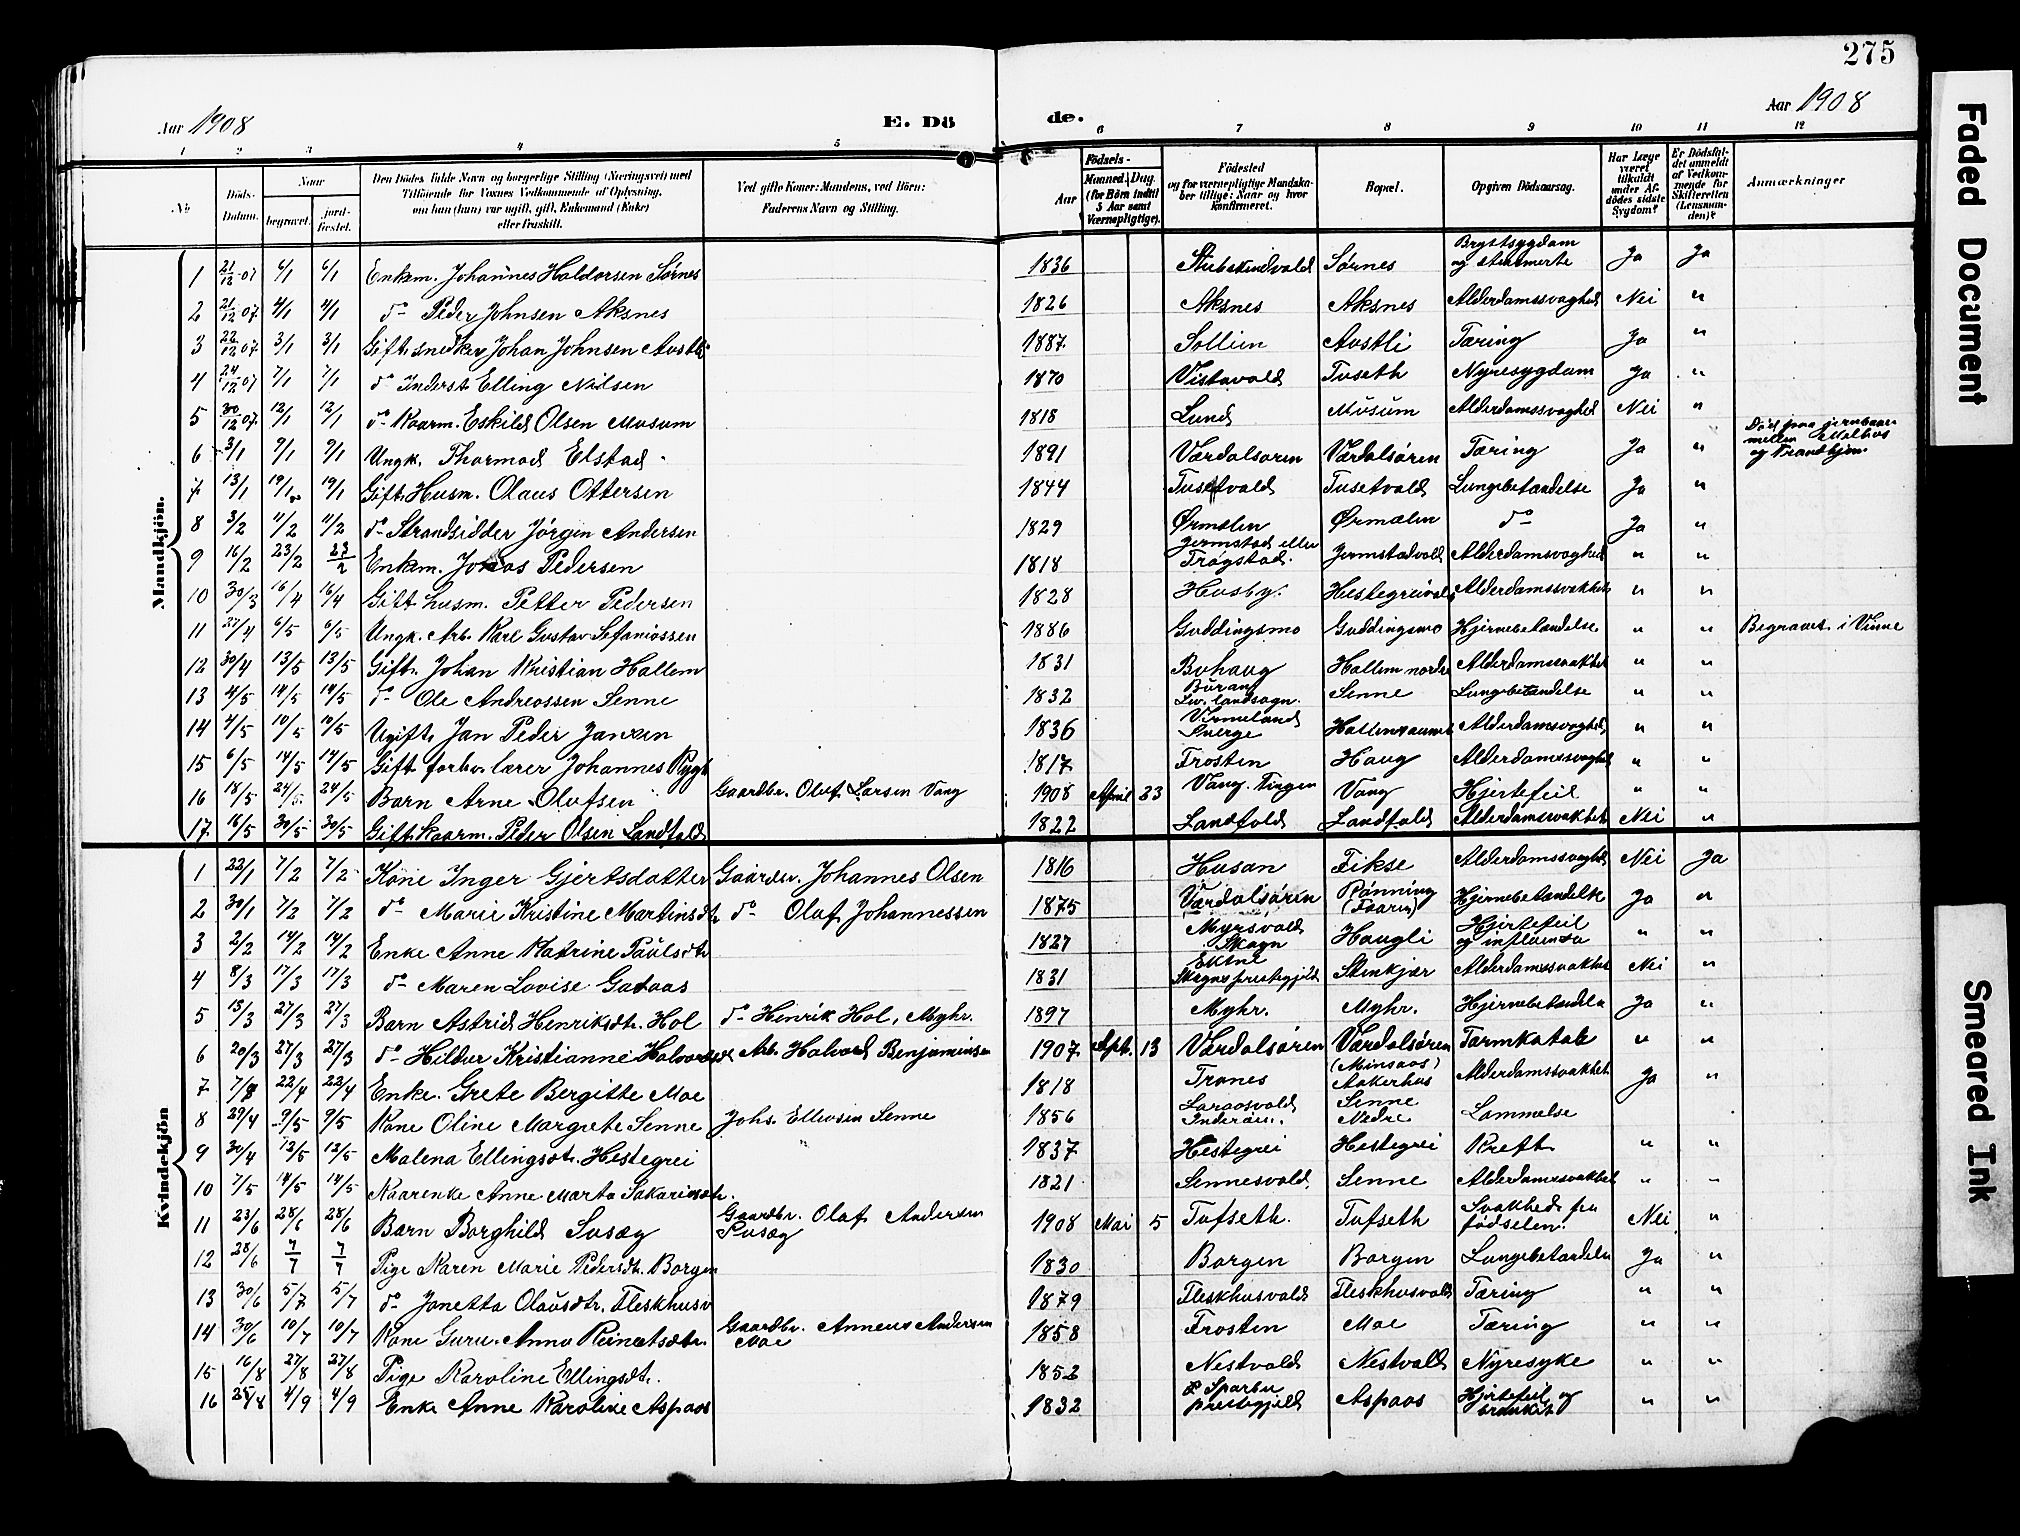 275
Aar 1908
E. Döde.
Aar 1908
1 2 3 4 5 6 7 8 9 10 11 12
No
Döds-Datum.
Naar
begravet.
jord-fæstet.
Den Dödes fulde Navn og borgerlige Stilling (Næringsvei) med
Tilföiende for Voxnes Vedkommende af Oplysning,
om han (hun) var ugift, gift, Enkemand (Enke)
eller fraskilt.
Ved gifte Koner: Mandens, ved Börn:
Faderens Navn og Stilling.
Födsels-
Aar
Maaned. Dag.
(for Börn indtil
5 Aar samt
Værnepligtige).
Födested
og for værnepligtige Mandska-
ber tillige: Naar og hvor
konfirmeret.
Bopæl.
Opgiven Dödsaarsag.
Har Læge
været
tilkaldt
under Af-
dödes sidste
Sygdom?
Er Dödsfal-
det anmeldt
af Vedkom-
mende for
Skifteretten
(Lensman-
den)?
Anmærkninger
Mandkjön.
1 21/12 07 6/1 6/1 Enkem. Johannes Haldorsen Sørnes 1836 Stubskindvald Sørnes Brystsygdom og Ja Ja
2 21/12 07 4/1 4/1 do Peder Johnsen Aksnes 1826 Aksnes Aksnes Alderdomssvaghed Nei "
3 22/12 07 3/1 3/1 Gift snedker Johan Johnsen Austli 1887 Sollien Austli Tæring Ja "
4 24/12 07 7/1 7/1 do Inderst Elling Nilsen 1870 Vistavald Tuseth Nyresygdom Ja "
5 30/12 07 12/1 12/1 do Kaarm. Eskild Olsen Musum 1818 Lund Musum Alderdomssvaghed Nei "
6 3/1 9/1 9/1 Ungk. Thormod Elstad 1891 Værdalsøren Værdalsøren Tæring Ja " Død paa jernbane mellem Melhus og Trondhjem.
7 13/1 19/1 19/1 Gift Husm. Olaus Ottersen 1844 Tusetvald Tusetvald Lungebetændelse Ja "
8 3/2 11/2 11/2 do Strandsidder Jørgen Andersen 1829 Ørmelen Ørmelen do Ja "
9 16/2 23/2 23/2 Enkem. Pedersen 1818 Jermstad eller Trøgstad. Jermstadvald Alderdomsvaghed " "
10 30/3 16/4 16/4 Gift husm. Petter Pedersen 1828 Husby. Hestegreivald Alderdomssvakhet " "
11 27/4 6/5 6/5 Ungk. Arb. Karl Gustav Sefaniassen 1886 Guddingsmo Guddingsmo Hjernebetændelse " " Begravet i Vinne
12 30/4 13/5 13/5 Gift. Johan Kristian Hallem 1831 Buhaug Hallem nordre Alderdomssvakhet " "
13 4/5 14/5 14/5 do Ole Andreassen Senne 1832 Buran Lev. landsogn. Senne Lungebetændelse " "
14 4/5 10/5 10/5 Ugift Jan Peder Janzen 1836 Vermeland Sverge Alderdomsvaghed " "
15 6/5 14/5 14/5 Gift forhv. lærer Johannes Rygt 1817 Frosten Haug Alderdomssvaghed " "
16 18/5 24/5 24/5 Barn Arne Olufsen Gaardbr. Oluf Larsen Vang 1908 April 23 Vang. Tingen Vang Hjertefeil " "
17. 16/5 30/5 30/5 Gift Kaarm. Peder Olsen Landfald 1822 Landfald Landfald Alderdomssvakhet Nei "
Kvindekjön
1 22/1 7/2 7/2 Kone Inger Gjertsdatter Gaardbr. Johannes Olsen 1816 Husan Fikse Alderdomssvaghed Nei Ja
2 30/1 7/2 7/2 do Marie Kristine Martinsdtr do Olaf Johannessen 1875 Værdalsøren Rønning (Faaren) Hjernebetændelse Ja "
3 2/2 14/2 14/2 Enke Anne Katrine Paulsdtr 1827 Myrsvald Skogn Haugli Hjertefeil og influensa " "
4 8/3 17/3 17/3 do Maren Lovise Gadaas 1831 Ektne Skogns prestegjeld Stenkjær Alderdomssvakhet Nei "
5 13/3 27/3 27/3 Barn Astrid Henriksdtr. Hol do Henrik Hol, Myhr. 1897 Myhr. Myhr. Hjernebetændelse Ja "
6 20/3 27/3 27/3 do Hildur Kristianne Halvorsdtr Arb. Halvord Benjaminsen 1907 Sept. 13 Værdalsøren Værdalsøren Tarmkatah " "
7 7/8 22/4 22/4 Enke. Grete Bergitte Moe 1818 Trones (Minsaas) Aakerhus Alderdomssvakhet Ja "
8 29/4 9/5 9/5 Kone Oline Margrete Senne Johs. Ellevsen Senne 1856 Inderøen. Senne Nedre Lammelse
9 30/4 12/5 12/5 Malena Ellingsdtr. Hestegrei " 1837 Hestegrei Hestegrei Kreft " "
10 7/5 14/5 14/5 Kaarenke Anne Marta Sakariasdtr. 1821 Sennesvald Senne Alderdomssvakhet " "
11 23/6 28/6 28/6 Barn Borghild Susæg Gaardbr. Olaf Andersen Susæg 1908 Mai 5 Tufseth. Tufseth Svakhed fra fødselen. Nei "
12 28/6 7/7 7/7 Pige Karen Marie Pedersdtr. Borgen 1830 Borgen Borgen Lungebetændelse Ja "
13 30/6 5/7 5/7 do Janetta Olausdtr. Fleskhusv 1879 Fleskhusvald Fleskhusvald Tæring " "
14 30/6 10/7 10/7 Kone Guru Anna Reinertsdtr. Gaardbr. Anneus Andersen Moe 1858 Frosten Moe Tæring " "
15 16/8 27/8 27/8 Pige Karoline Ellingsdtr. 1852 Nestvald Nestvald Nyresyke " "
16 25/8 4/9 4/9 Enke Anne Karoline Aspaas 1832 Sparbu prestegjeld Aspaas Hjertefeil og " "
Faded Document
Smeared Ink